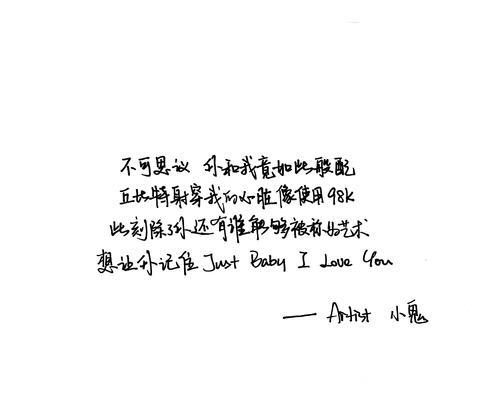 不可思议 你和我竟如此般配
丘比特射穿我的心脏像使用98K
此刻除了你还有谁能够被称为艺术
想让你记住 Just Baby I Love You
—— Artist 小鬼